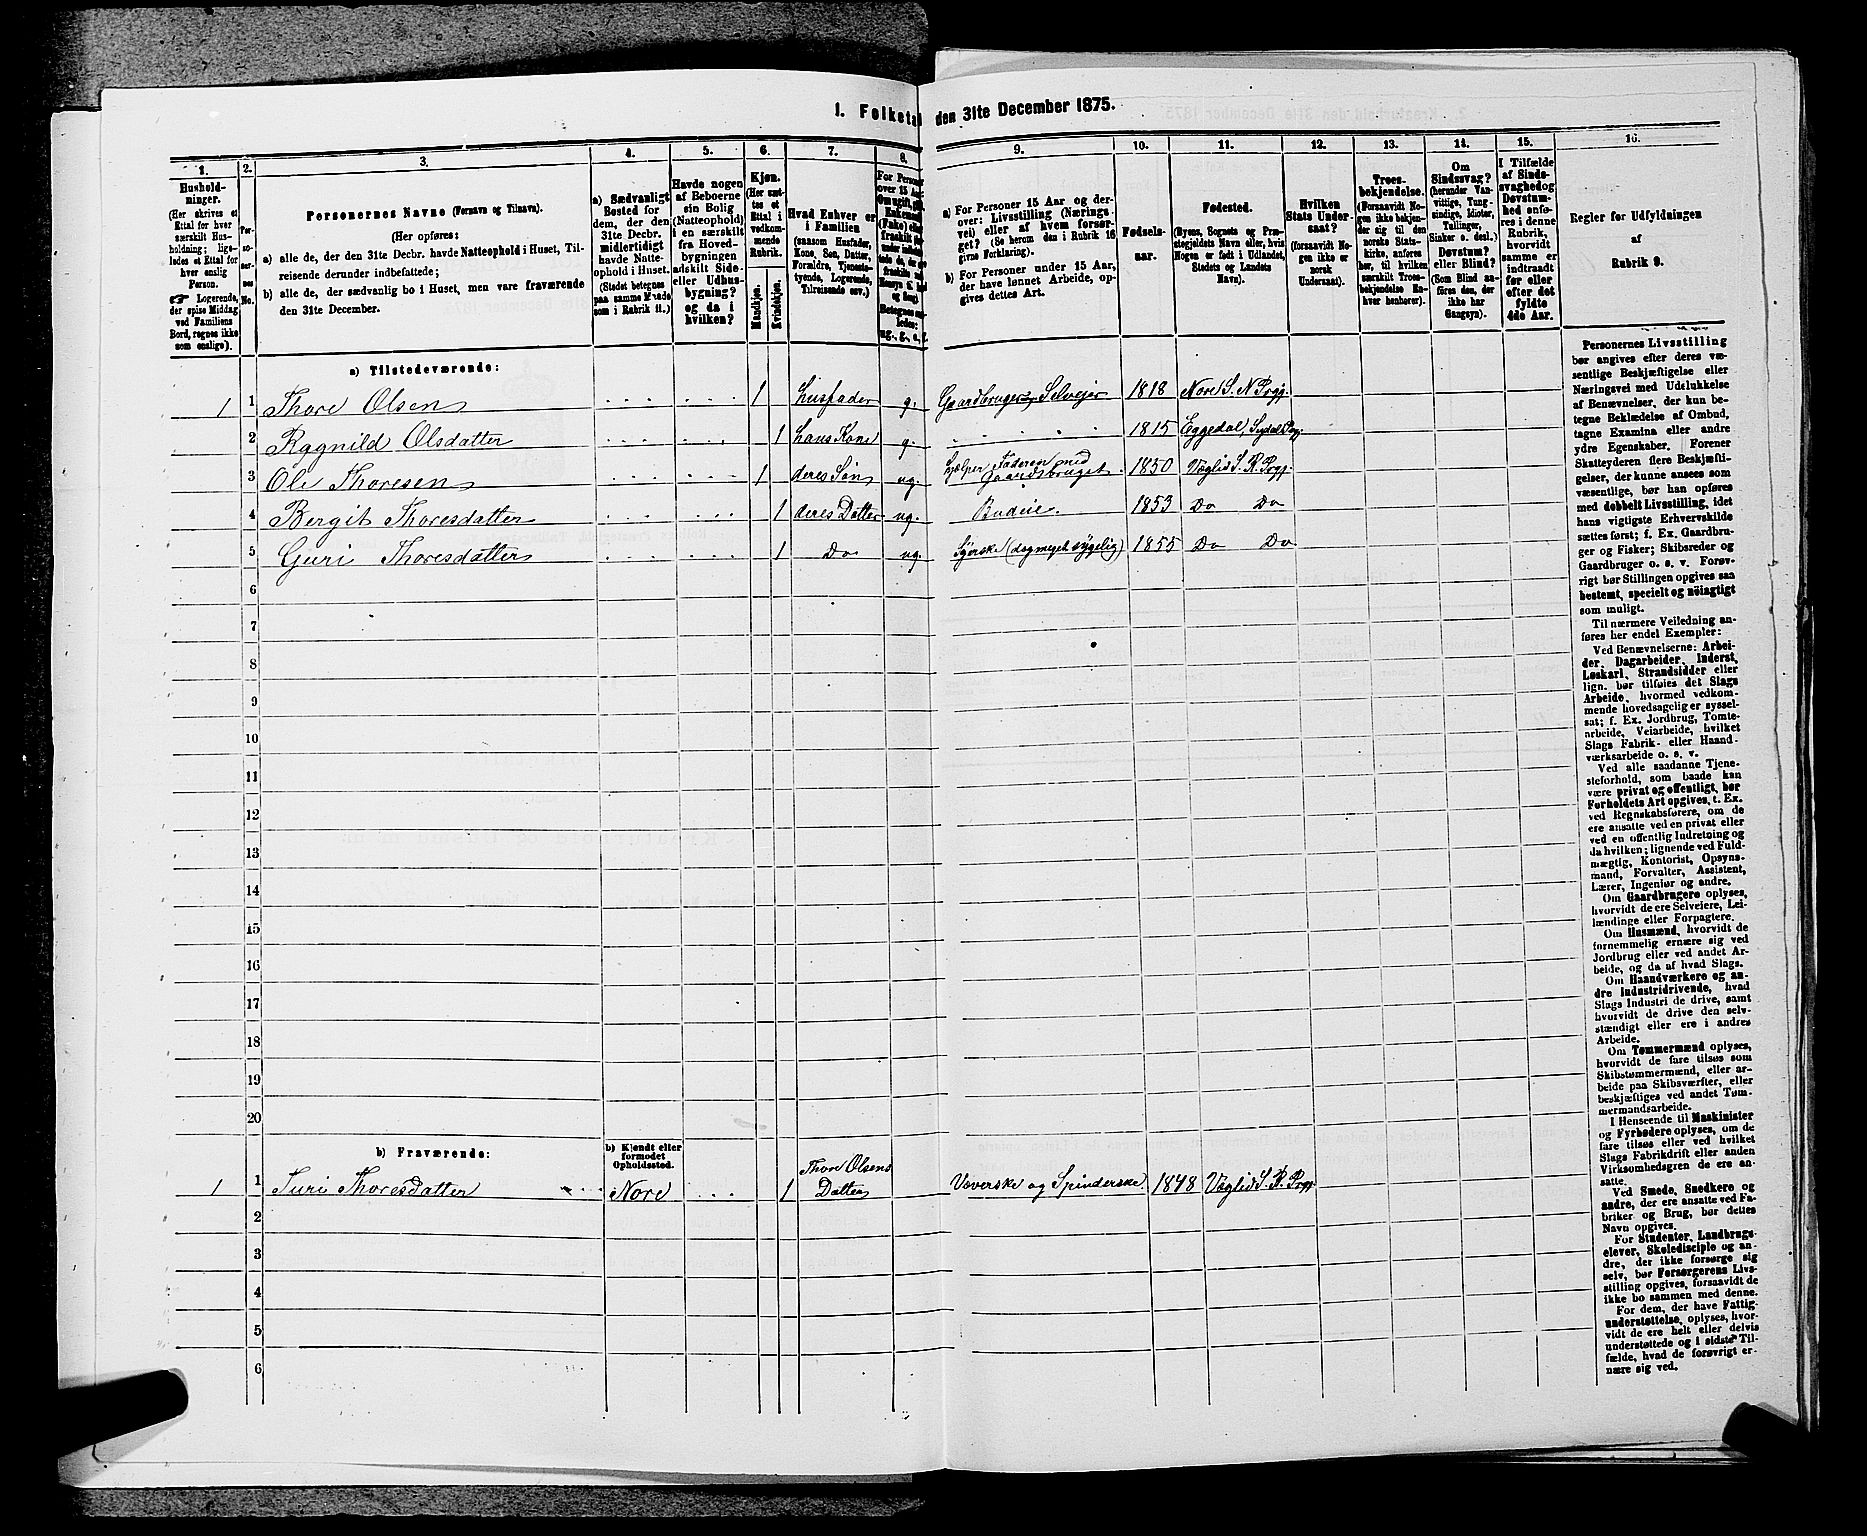 1. Folketal den 31te December 1875.
1.
Hushold-
ninger.
(Her skrives et
Ettal for hver
særskilt Hus-
holdning; lige-
ledes et Ettal for
hver enslig
Person.
☛ Logerende,
der spise Middag
ved Familiens
Bord, regnes ikke
som enslige).
2.
Per-
so-
ner-
nes
No.
3.
Personernes Navne (Fornavn og Tilnavn).
(Her opføres:
a) alle de, der den 31te Decbr. havde Natteophold i Huset, Til-
reisende derunder indbefattede;
b) alle de, der sædvanlig bo i Huset, men vare fraværende
den 31te December.
4.
a) Sædvanligt
Bosted for
dem, der den
31te Decbr.
midlertidigt
havde Natte-
ophold i Huset.
(Stedet betegnes
paa samme Maade
som i Rubrik 11.)
5.
Havde nogen
af Beboerne
sin Bolig
(Natteophold)
i en særskilt
fra Hoved-
bygningen
adskilt Side-
eller Udhus-
bygning?
og da i
hvilken?
6.
Kjøn.
(Her sæt-
tes et
Ettal i
vedkom-
mende
Rubrik.
Mandkjøn.
Kvindekjøn.
7.
Hvad Enhver er
i Familien
(saasom Husfader,
Kone, Søn, Datter,
Forældre, Tjeneste-
tyende, Logerende,
Tilreisende osv.)
8.
For Personer
over 15 Aar
9.
a) For Personer 15 Aar og der-
over: Livsstilling (Nærings-
vei) eller af hvem forsør-
get? (Se herom den i Rubrik 16
givne Forklaring).
b) For Personer under 15 Aar,
der have lønnet Arbeide, op-
gives dettes Art.
10.
Fødsels-
aar.
11.
Fødested.
(Byens, Sognets og Præ-
stegjeldets Navn eller, hvis
Nogen er født i Udlandet,
Stedets og Landets
Navn).
12.
Hvilken
Stats Under-
saat?
(forsaavidt No-
gen ikke er
norsk
Undersaat).
13.
Troes-
bekjendelse.
(Forsaavidt No-
gen ikke bekjen-
der sig til den
norske Stats-
kirke, anføres
her, til hvilken
særskilt Troes-
bekjendelse En-
hver henhører).
14.
Om
Sindssvag?
(herunder Van-
vittige, Tung-
sindige, Idioter,
Tullinger,
Sinker o. desl.)
Døvstum?
eller Blind?
(Som Blind an-
føres den, der
ikke har
Gangsyn).
15.
I Tilfælde
af Sinds-
svaghed og
Døvstum-
hed anfø-
res i denne
Rubrik,
hvorvidt
samme er
indtraadt
før eller
efter det
fyldte
4de Aar.
16.
Regler for Udfyldningen
af
Rubrik 9.
a) Tilstedeværende:
1 1 Thore Olsen 1 Husfader g. Gaardbruger Selveier 1818 Nore S. N Prgj.
2 Ragnild Olsdatter 1 hans Kone g. 1815 Eggedal, Sigdals Prgj.
3 Ole Thoresen 1 deres Søn ug. hjelper Faderen med Gaardsbruget 1850 Væglid S. R. Prgj.
4 Bergit Thoresdatter 1 deres Datter ug. Budeie. 1853 Do Do
5 Guri Thoresdatter 1 Do ug. Syerske (dog meget sygelig) 1855 Do Do
6
7
8
9
10
11
12
13
14
15
16
17
18
19
20
b) Fraværende:
b) Kjendt eller
formodet
Opholdssted.
1 1 Turi Thoresdatter Nore 1 Thore Olsens Datter Væverske og Spinderske. 1848 Væglid S. R. Prgj.
2
3
4
5
6
Personernes Livsstilling
bør angives efter deres væ-
sentlige Beskjæftigelse eller
Næringsvei med Udelukkelse
af Benævnelser, der kun be-
tegne Beklædelse af Ombud,
tagne Examina eller andre
ydre Egenskaber. Forener
Skatteyderen flere Beskjæfti-
gelser, der kunne ansees som
væsentlige, bør han opføres
med dobbelt Livsstilling, idet
hans vigtigste Erhvervskilde
sættes først; f. Ex. Gaardbru-
ger og Fisker; Skibsreder og
Gaardbruger o. s. v. Forøv-
rigt bør Stillingen opgives saa
bestemt, specielt og nøiagtigt
som muligt.
Til nærmere Veiledning an-
føres her endel Exempler:
Ved Benævnelserne: Arbei-
der, Dagarbeider, Inderst,
Løskarl, Strandsidder eller
lign. bør tilføies det Slags
Arbeide, hvormed vedkom-
mende hovedsagelig er syssel-
sat; f. Ex. Jordbrug, Tomte-
arbeide, Veiarbeide, hvilket
Slags Fabrik- eller Haand-
værksarbeide o. s. v.
Ved alle saadanne Tjene-
steforhold, som baade kan
være privat og offentligt, bør
Forholdets Art opgives, t. Ex.
ved Regnskabsførere, om de
ere ansatte ved en privat eller
ved en offentlig Indretning og
da hvilken; lignende ved Fuld-
mægtig, Kontorist, Opsyns-
mand, Forvalter, Assistent,
Lærer, Ingeniør og andre.
Om Gaardbrugere oplyses,
hvorvidt de ere Selveiere, Lei-
lændinge eller Forpagtere.
Om Husmænd, hvorvidt de
fornemmelig ernære sig ved
Jordbrug eller ved andet Ar-
beide, og da af hvad Slags.
Om Haandværkere og an-
dre Industridrivende, hvad
Slags Industri de drive, samt
hvorvidt de drive den selv-
stændigt eller ere i andres
Arbeide.
Om Tømmermænd oplyses,
hvorvidt de fare tilsøs som
Skibstømmermænd, eller ar-
beide paa Skibsværfter, eller
beskjæftiges ved andet Tøm-
mermandsarbeide.
I Henseende til Maskinister
og Fyrbødere oplyses, om de
fare tilsøs eller ved hvilket
Slags Fabrikdrift eller anden
Virksomhedsgren de ere an-
satte.
Ved Smede, Snedkere og
andre, der ere ansatte ved Fa-
briker og Brug, bør dettes
Navn opgives.
For Studenter, Landbrugs-
elever, Skoledisciple og an-
dre, der ikke forsørge sig
selv, bør Forsørgerens Livs-
stilling opgives, forsaavidt de
ikke bo sammen med denne.
For dem, der have Fattig-
understøttelse, oplyses, hvor-
vidt de ere helt eller delvis
understøttede og i sidste Til-
fælde, hvad de forøvrigt er-
nære sig ved.